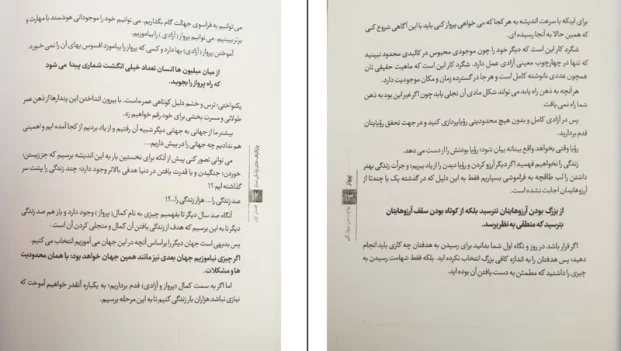 می توانیم به فراسوی جهالت گام بگذاریم. می توانیم خود را موجوداتی هوشمند با مهارت و
برتر ببینیم. می توانیم پرواز (آزادی) را بیاموزیم.
آموختن پرواز (آزادی) بها دارد و کسی که پرواز را بیاموزد افسوس بهای آن را نمی خورد.
از میان میلیون ها انسان تعداد خیلی انگشت شماری پیدا می شود
که راه پرواز را بجوید.
یکنواختی، ترس و خشم دلیل کوتاهی عمر ماست. با بیرون انداختن این پندارها از ذهن عمر
طولانی و مسرت بخشی برای خود رقم خواهیم زد.
بیشتر ما از جهانی به جهانی دیگر شبیه آن رفتیم و از یاد بردیم از کجا آمده ایم و اهمیتی
هم ندادیم چه جهانی را در پیش داریم...
می توانی تصور کنی پیش از آنکه برای نخستین بار به این اندیشه برسیم که جز زیستن؛
خوردن؛ جنگیدن و یا قدرت یافتن در دنیا هدفی بالاتر وجود دارد؛ چند زندگی را پشت سر
گذاشته ایم ؟!
صد زندگی را...هزار زندگی را..؟!
آنگاه صد سال دیگر تا بفهمیم چیزی به نام کمال( پرواز ) وجود دارد و باز هم صد زندگی
دیگر تا به این برسیم که هدف از زندگی یافتن آن کمال و متجلی کردن آن است.
پس بدیهی است جهان دیگر را براساس آنچه در این جهان می آموزیم انتخاب می کنیم.
اگر چیزی نیاموزیم جهان بعدی نیز مانند همین جهان خواهد بود؛ با همان محدودیت
ها و مشکلات.
اما اگر به سمت کمال (پرواز و آزادی) قدم برداریم؛ به یکباره آنقدر خواهیم آموخت که
نیازی نباشد هزاران بار زندگی کنیم تا به این مرحله برسیم.
۱۲
برای اینکه با سرعت اندیشه به هر کجا که می خواهی پرواز کنی باید با این آگاهی شروع کنی
که همین حالا به آنجا رسیده ای.
شگرد کار این است که دیگر خود را چون موجودی محبوس در کالبدی محدود نبینید
که تنها در چهارچوب معینی آزادی عمل دارد. شگرد کار این است که ماهیت حقیقی تان
همچون عددی نانوشته کامل است و هر جا در گستره زمان و مکان موجودیت دارد.
هر آنچه به ذهن راه یابد می تواند شکل مادی آن تجلی یابد چون اگر غیر این بود به ذهن
شما راه نمی یافت.
پس در آزادی کامل و بدون هیچ محدودیتی رویاپردازی کنید و در جهت تحقق رؤیایتان
قدم بردارید.
رؤیا وقتی بخواهد واقع بینانه بیان شود؛ رؤیا بودنش را از دست می دهد.
زندگی را نخواهیم فهمید اگر دیگر آرزو کردن و رؤیا دیدن را از یاد ببریم؛ و جرأت زندگی بهتر
داشتن را لب طاقچه به فراموشی بسپاریم فقط به این دلیل که در گذشته یک یا چندتا از
آرزوهایمان اجابت نشده است.
از بزرگ بودن آرزوهایتان نترسید بلکه از کوتاه بودن سقف آرزوهایتان
بترسید که منطقی به نظر برسد.
اگر قرار باشد در روز و نگاه اول شما بدانید برای رسیدن به هدفتان چه کاری باید انجام
دهید؛ پس هدفتان را به اندازه کافی بزرگ انتخاب نکرده اید. بلکه فقط شهامت رسیدن به
چیزی را داشتید که مطمئن به دست یافتن آن بوده اید.
پرواز
۱۳